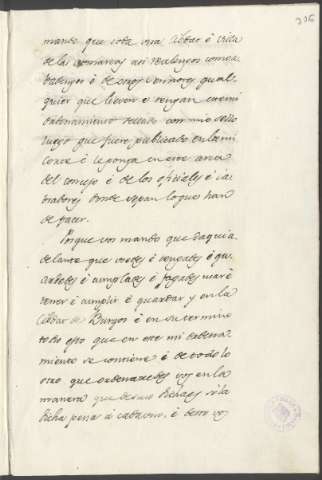 306
mando que toda una Cibdat è villa
de las comarcas asi realengos como a
badengos è de otros señores qual
quier que lieven è tengan este mi
ordenamiento sellado con mio sello
luego que fuere publicado en la mi
Corte è lo ponga en el arca
del concejo è de los oficiales è la
bradores donde vean lo que han
de facer.
Porque vos mando que daqui a
delante que usedes è tengades è gu
ardedes è cumplades è fagades usar è
tener è cumplir è guardar y en la
Cibdat de Burgos è en su termino
todo esto que en este mi ordena
miento se contiene è de todo lo
otro que ordenaredes vos en la
manera que de suso dicha es só la
dicha pena à cada uno, è desto vos